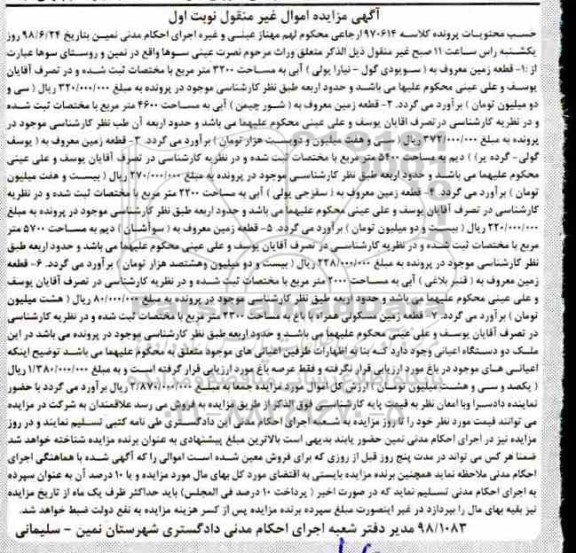 آگهی مزایده اموال غیر منقول نوبت اول
حسب محتویات پرونده کلاسه ۹۷۰۶۱۴ ارجاعی محکوم لهم مهناز عینی و غیره اجرای احکام مدنی نمین بتاریخ ۹۸/۶/۲۴ روز
یکشنبه راس ساعت ۱۱ صبح غیر منقول ذیل الذکر متعلق وراث مرحوم نصرت عینی سوها واقع در نمین و روستای سوها عبارت
از :۱- قطعه زمین معروف به ( سویودی گول - نیارا یولی ) آبی به مساحت ۳۲۰۰ متر مربع با مختصات ثبت شده و در تصرف آقایان
یوسف و علی عینی محکوم علیها می باشد و حدود اربعه طبق نظر کارشناسی موجود در پرونده به مبلغ ۳۲۰/۰۰۰/۰۰۰ ریال ( سی و
دو میلیون تومان ) برآورد می گردد. ۲- قطعه زمین معروف به ( شور چیمن ) آبی به مساحت ۴۶۰۰ متر مربع با مختصات ثبت شده
و در نظریه کارشناسی در تصرف آقایان یوسف و علی عینی محکوم علیهما می باشد و حدود اربعه آن طبق نظر کارشناسی موجود در
پرونده به مبلغ ۳۷۲/۰۰۰/۰۰۰ ریال ( سی و هفت میلیون و دویست هزار تومان ) برآورد می گردد. ۳- قطعه زمین معروف به ( یوسف
گولی- گرده یر) ) دیم به مساحت ۵۴۰۰ متر مربع با مختصات ثبت شده و در نظریه کارشناسی در تصرف آقایان یوسف و علی عینی
محکوم علیهما می باشد و حدود اربعه طبق نظر کارشناسی موجود در پرونده به مبلغ ۲۷۰/۰۰۰/۰۰۰ ریال ( بیست و هفت میلیون
تومان ) برآورد می گردد. ۴- قطعه زمین معروف به ( سقزجی یولی ) آبی به مساحت ۲۲۰۰ متر مربع با مختصات ثبت شده و در نظریه
کارشناسی در تصرف آقایان یوسف و علی عینی محکوم علیهما می باشد و حدود اربعه طبق نظر کارشناسی موجود در پرونده به مبلغ
۲۲۰/۰۰۰/۰۰۰ ریال ( بیست و دو میلیون تومان ) برآورد می گردد. ۵- قطعه زمین معروف به ( سوآشان ) دیم به مساحت ۵۷۰۰ متر
مربع با مختصات ثبت شده و در نظریه کارشناسی در تصرف آقایان یوسف و علی عینی محکوم علیهما می باشد و حدود اربعه طبق
نظر کارشناسی موجود در پرونده به مبلغ ۲۲۸/۰۰۰/۰۰۰ ریال ( بیست و دو میلیون وهشتصد هزار تومان ) برآورد می گردد. ۶- قطعه
زمین معروف به ( قنبر بلاغی ) آبی به مساحت ۲۰۰۰ متر مربع با مختصات ثبت شده و در نظریه کارشناسی در تصرف آقایان یوسف
و علی عینی محکوم علیهما می باشد و حدود اربعه طبق نظر کارشناسی موجود در پرونده به مبلغ ۸۰/۰۰۰/۰۰۰ ریال ( هشت میلیون
تومان ) برآورد می گردد. ۷- قطعه زمین مسکونی همراه با باغ به مساحت ۲۳۰۰ متر مربع با مختصات ثبت شده و در نظریه کارشناسی
در تصرف آقایان یوسف و علی عینی محکوم علیهما می باشد و حدود اربعه طبق نظر کارشناسی موجود در پرونده می باشد در این
ملک دو دستگاه اعیانی وجود دارد که بنا به اظهارات طرفین اعیانی های موجود متعلق به محکوم علیهما می باشد توضیح اینکه
اعیانی های موجود در باغ مورد ارزیابی قرار نگرفته و فقط عرصه باغ مورد ارزیابی قرار گرفته است و به مبلغ ۱/۳۸۰/۰۰۰/۰۰۰ ریال
( یکصد و سی و هشت میلیون تومان ) ارزش کل اموال مورد مزایده جمعا به مبلغ ۲/۸۷۰/۰۰۰/۰۰۰ ریال برآورد می گردد با حضور
نماینده دادسرا وبا امعان نظر به قیمت پایه کارشناسی فوق الذکر از طریق مزایده به فروش می رسد علاقمندان به شرکت در مزایده
می توانند قیمت مورد نظر خود را تا روز مزایده به شعبه اجرای احکام مدنی این دادگستری طی نامه کتبی تسلیم نمایند و در روز
مزایده نیز در اجرای احکام مدنی نمین حضور یابند بدیهی است بالاترین مبلغ پیشنهادی به عنوان برنده مزایده شناخته خواهد شد
ضمنا هر کس می تواند در مدت پنج روز قبل از روزی که برای فروش معین شده است اموالی را که آگهی شده با هماهنگی اجرای
احکام مدنی ملاحظه نماید همچنین برنده مزایده بایستی به اقتضای مورد کل بهای مال مورد مزایده و یا ۱۰ درصد آن به عنوان سپرده
به اجرای احکام مدنی تسلیم نماید که در صورت اخیر ( پرداخت ۱۰ درصد فی المجلس) باید حداکثر ظرف یک ماه از تاریخ مزایده
نیز بقیه بهای مال را بپردازد در غیر اینصورت مبلغ سپرده برنده مزایده پس از کسر هزینه مزایده به نفع دولت ضبط خواهد شد.
۹۸/۱۰۸۳ مدیر دفتر شعبه اجرای احکام مدنی دادگستری شهرستان نمین - سلیمانی